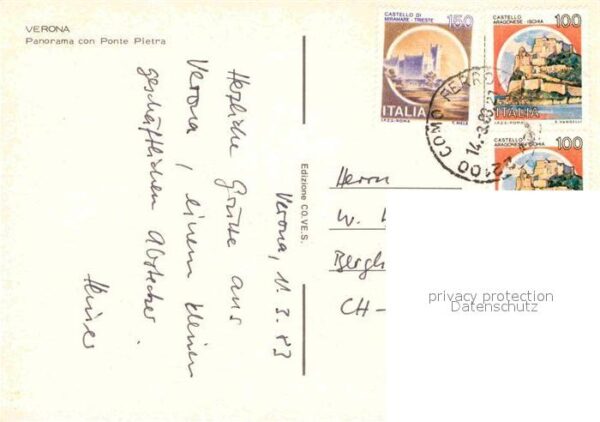 VERONA
Panorama con Ponte Pietra
Verona, 11.3.83
Herzliche Grüsse aus
Verona, einem kleinen
geschäftlichen Abstecher.
Edizione CO.VE.S.
CASTELLO DI
MIRAMARE-TRIESTE
150
ITALIA
I.P.Z.S.-ROMA
CASTELLO
ARAGONESE-ISCHIA
100
ITALIA
I.P.Z.S.-ROMA
E. VANGELLI
CASTELLO
ARAGONESE-ISCHIA
100
22100 COMO
14.-3.83
Herrn
W.
CH-
privacy protection
Datenschutz